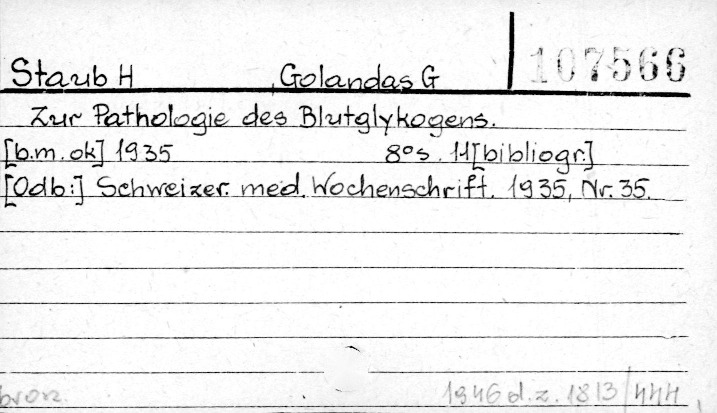 107566
Staub H , Golandas G
Zur Pathologie des Blutglykogens.
[b.m.ok] 1935 8° s. 11 [bibliogr.]
[Odb:] Schweizer. med. Wochenschrift. 1935, Nr. 35.
bron. 1946 d.z. 1813/444